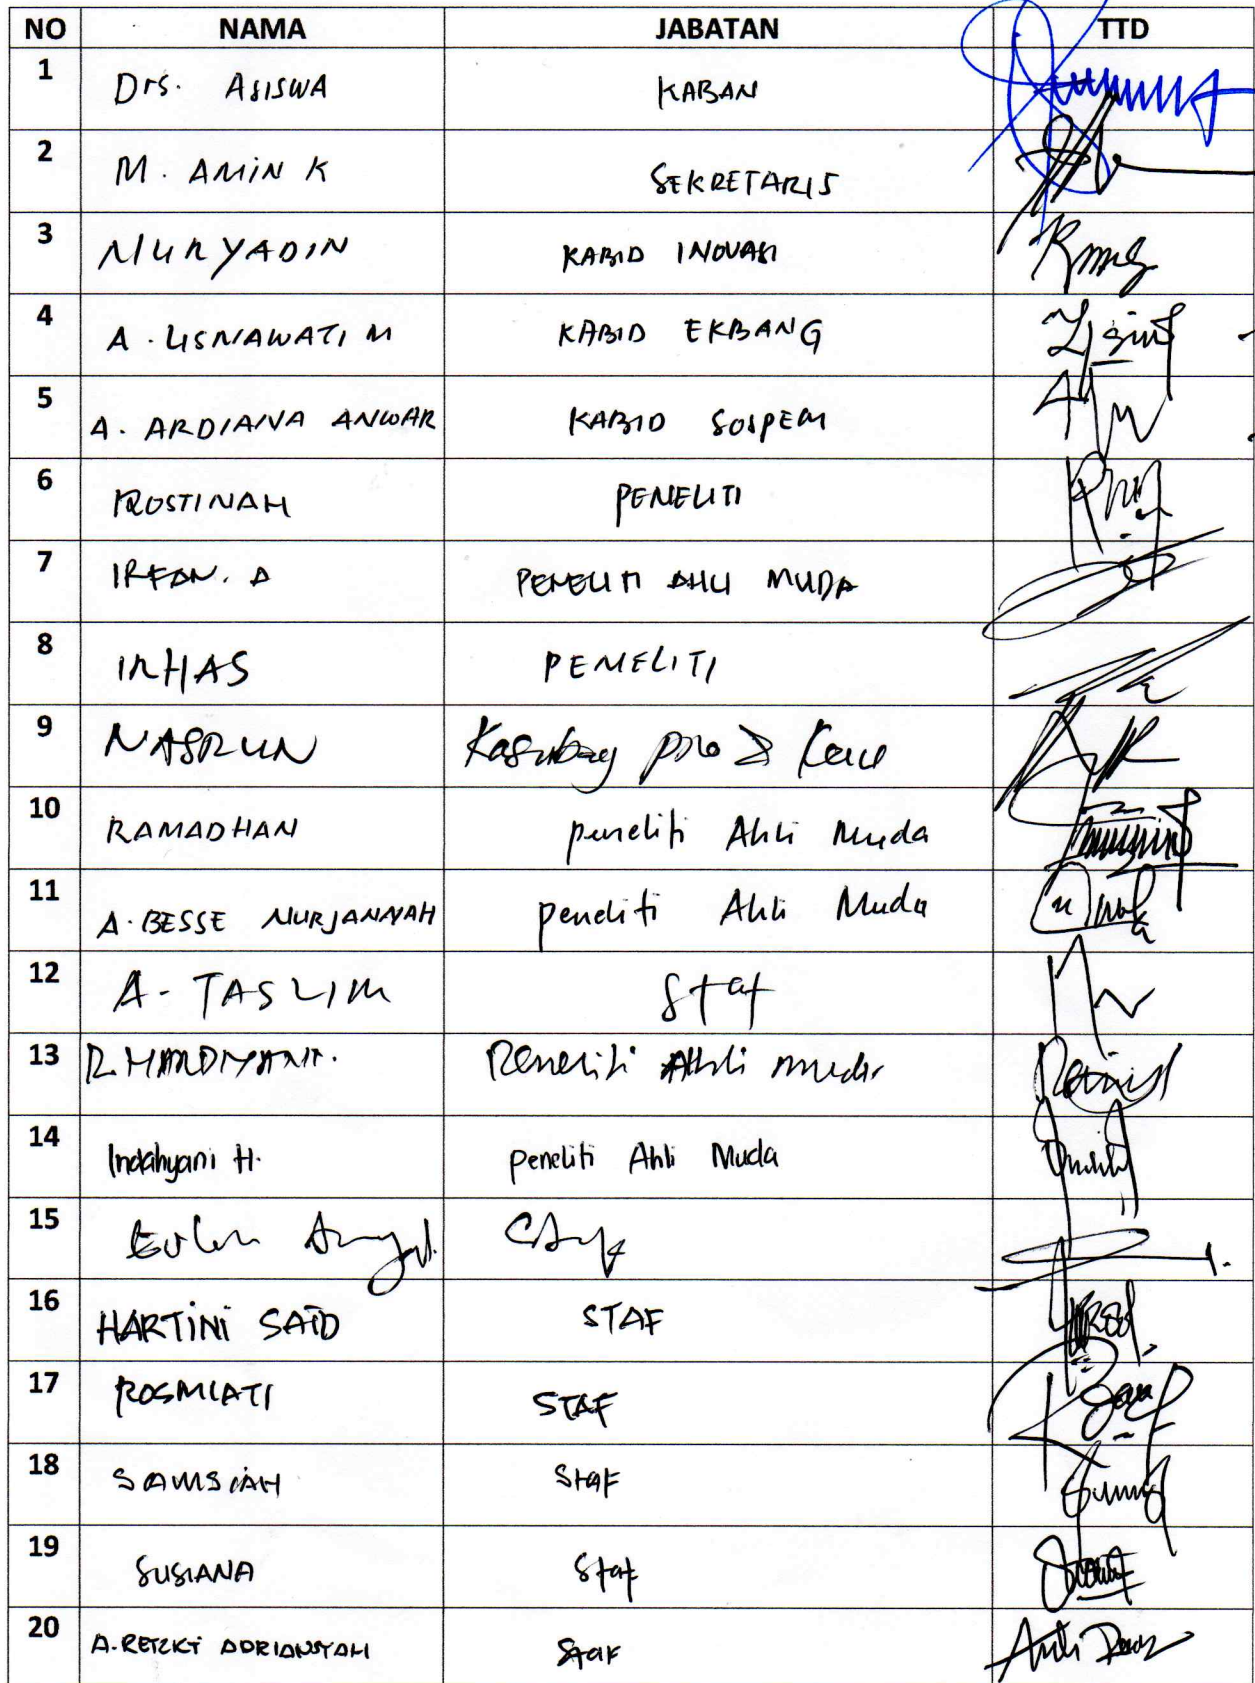 NO NAMA JABATAN TTD
1 Drs. ASISWA KABAN
2 M. AMIN K SEKRETARIS
3 NURYADIN KABID INOVASI
4 A. LISNAWATI M KABID EKBANG
5 A. ARDIANA ANWAR KABID SOSPEM
6 ROSTINAH PENELITI
7 IRFAN. A PENELITI AHLI MUDA
8 IRHAS PENELITI
9 NASRUN Kasubag
10 RAMADHAN peneliti Ahli Muda
11 A. BESSE NURJANNAH peneliti Ahli Muda
12 A. TASLIM Staf
13 Peneliti Ahli muda
14 Indahyani H. peneliti Ahli Muda
15
16 HARTINI SAID STAF
17 ROSMIATI STAF
18 SAMSIAH Staf
19 SUSIANA Staf
20 A. REIZKI ADRIANSYAH Staf